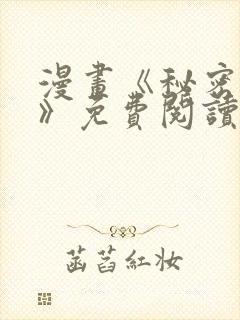 漫畫《秘密
》免費閱讀
菡萏紅妝